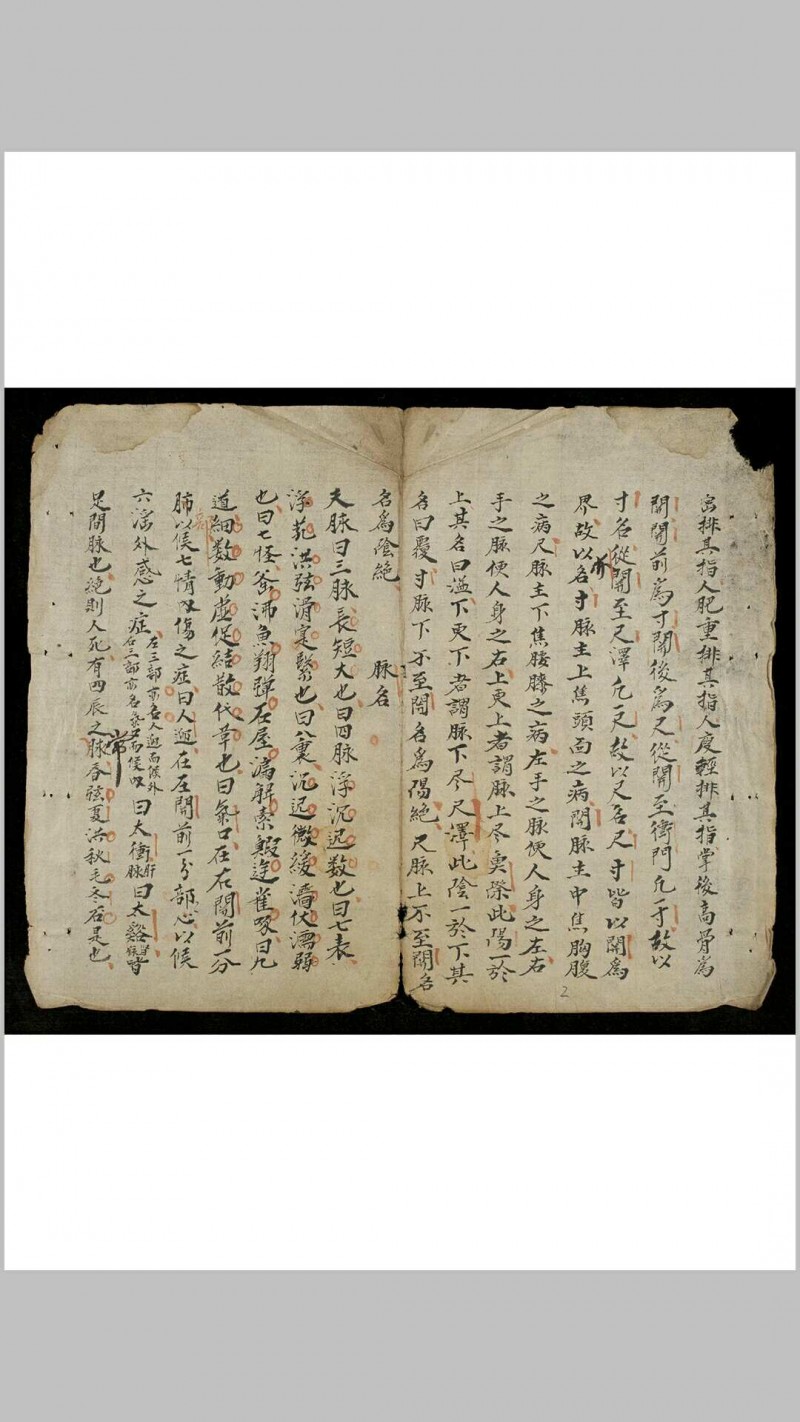 密排其指人肥重排其指人瘦輕排其指掌後高骨為
関関前為寸関後為尺從関至衝門凢一寸故以
寸名從関至尺澤凢一尺故以尺名尺寸皆以関為
界故以名寸脉主上焦頭面之病関脉主中焦胸腹
之病尺脉主下焦腰臍之病左手之脉便人身之左右
手之脉便人身之右上更上者謂脉上尽奧際此陽一於
上其名曰溢下更下者謂脉下尽尺澤此陰一於下其
名曰覆寸脉下不至関名為陽絶尺脉上不至関名
名為陰絶 脉名
夫脉曰三脉長短大也曰四脉浮沉迟数也曰七表
浮芤洪弦滑寔緊也曰八裏沉迟微緩濇伏濡弱
也曰七怪釜沸魚翔弹石屋漏解索鰕遊雀啄曰九
道細数動虚促結散代革也曰氣口在右関前一分
肺以候七情内傷之症曰人迎在左関前一分部心以候
六淫外感之症左三部前名人迎而候外右三部前名氣口而候内曰太衝肝脉曰太谿腎脉皆
足間脉也絶則人死有四辰之常脉春弦夏洪秋毛冬石是也
2